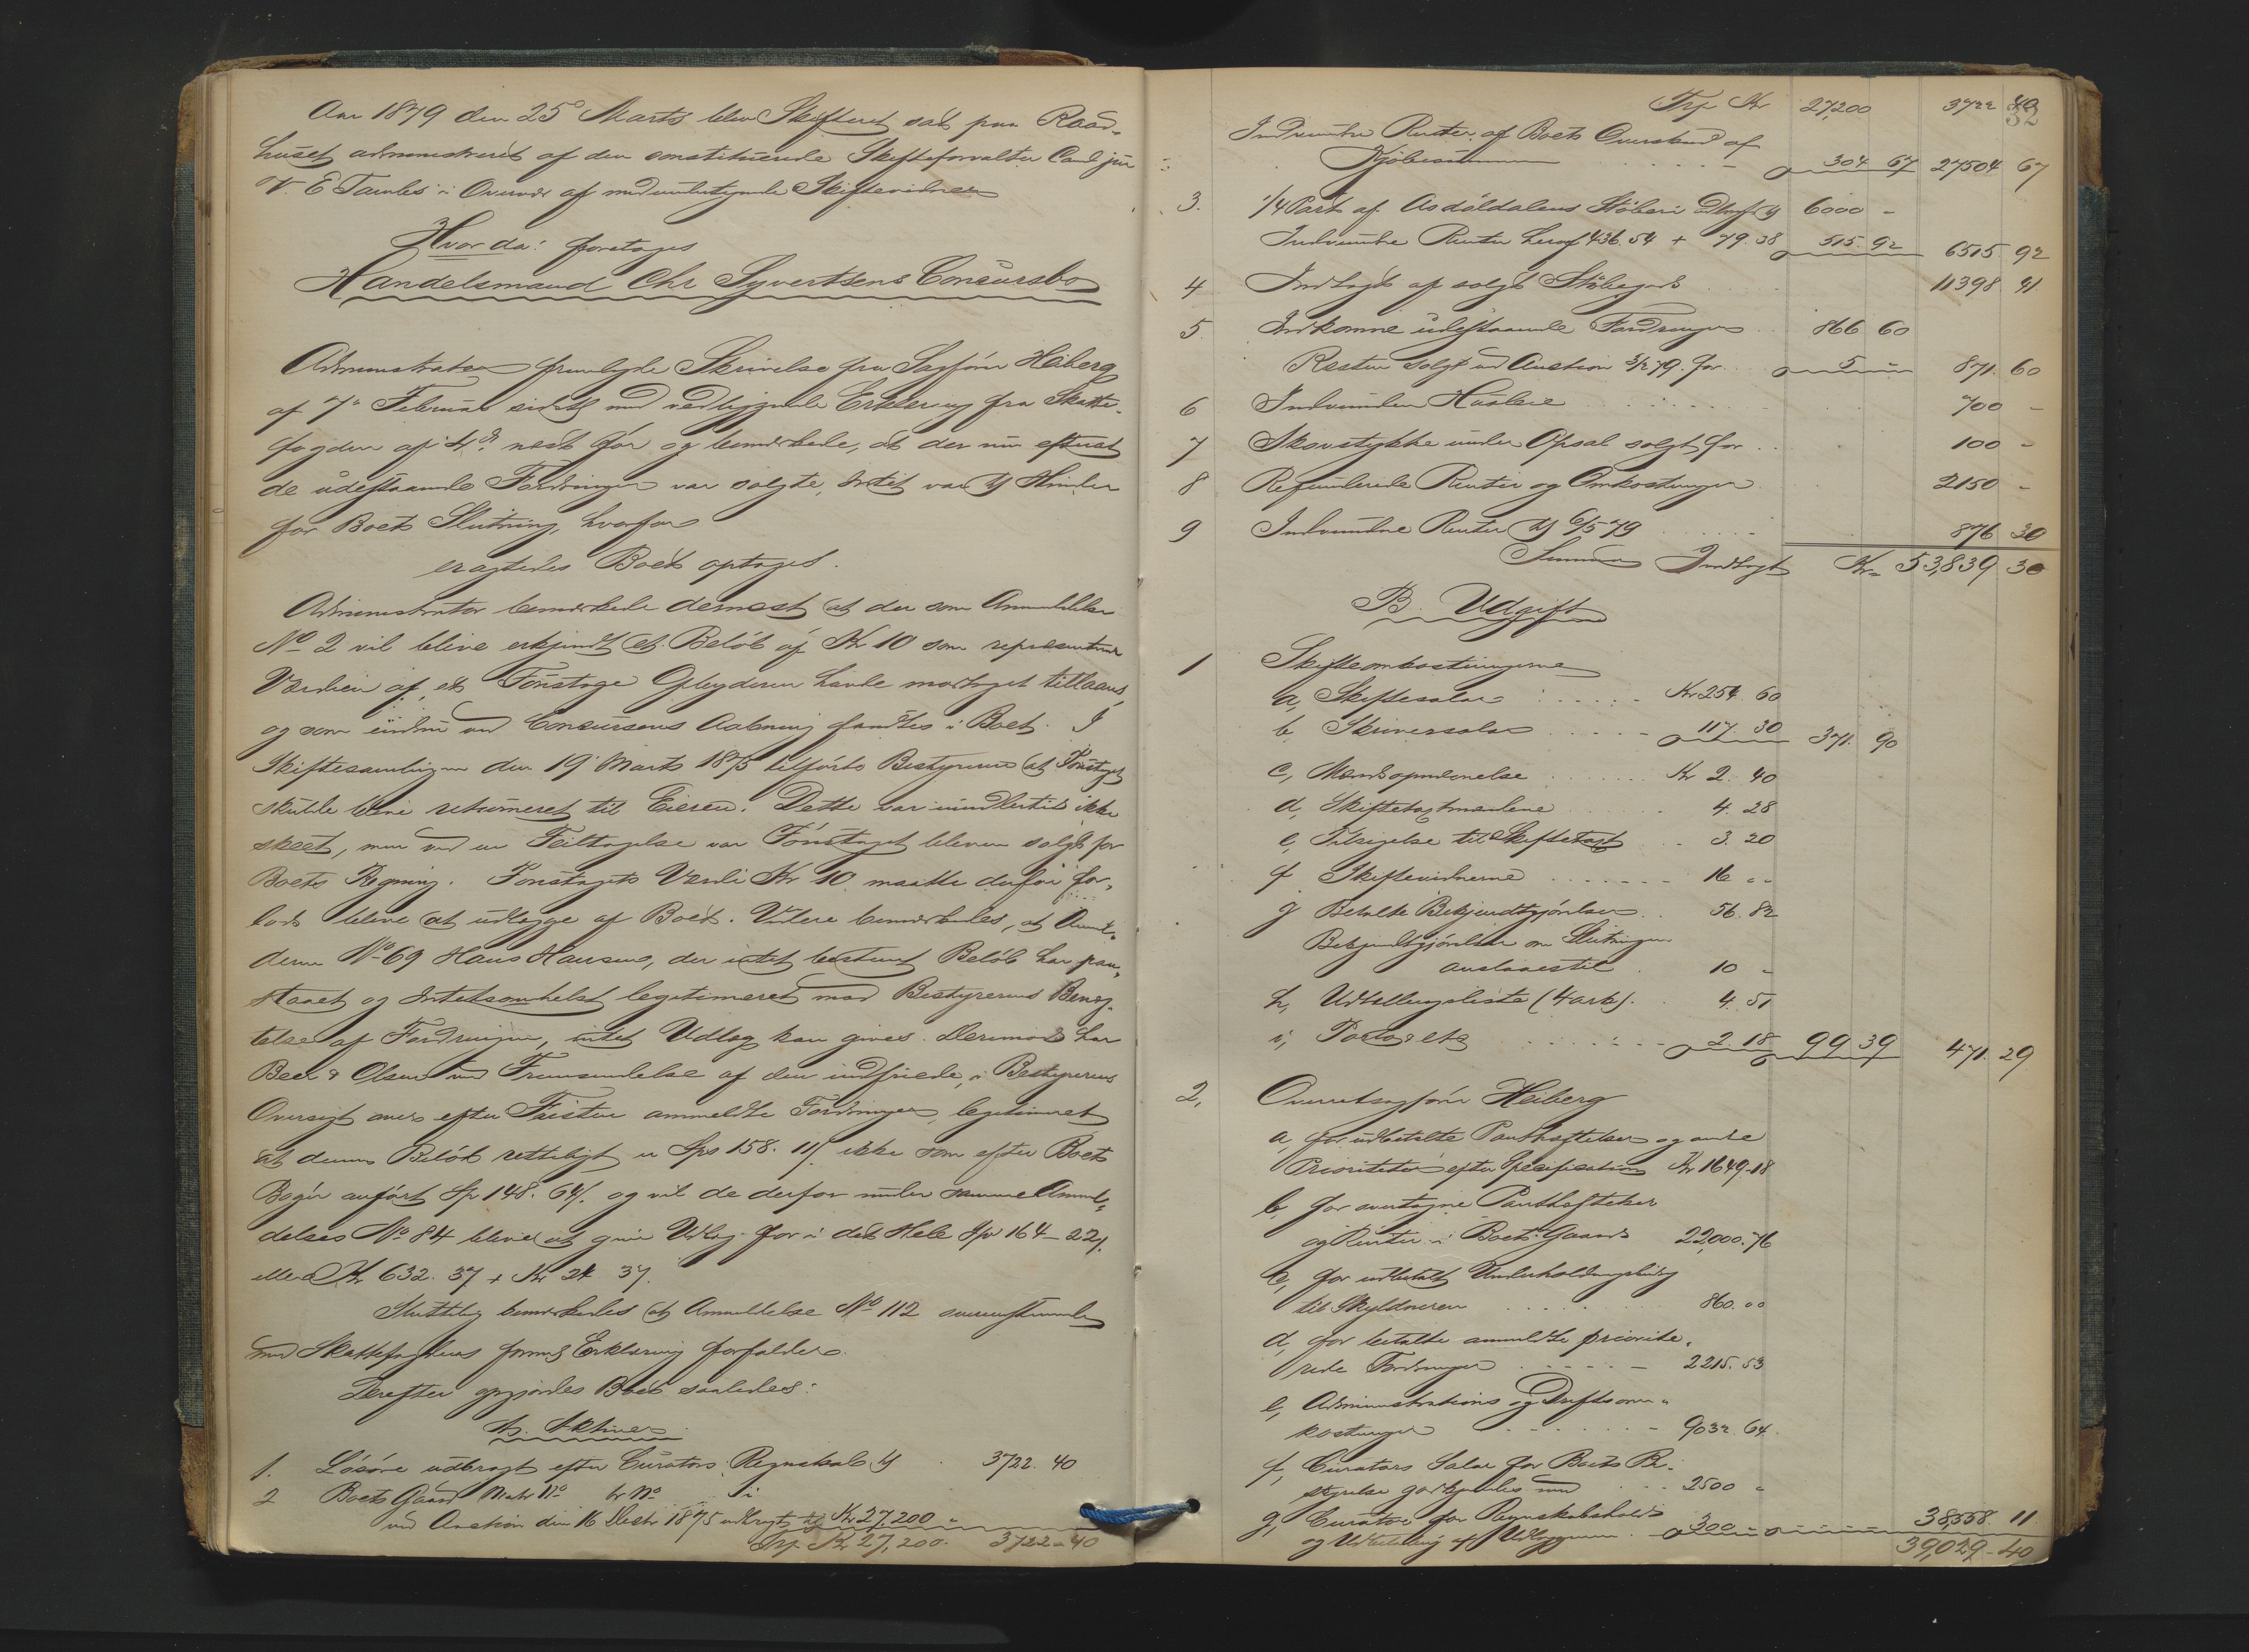 Aar 1879 den 25de Marts blev Skifteret sat paa Raad-
huset administreret af den constituerede Skifteforvalter Cand jur
V. E Tambs i Overvær af medundertegnede Skiftevidner
Hvor da: foretoges
Handelsmand Chr Syvertsens Concursbo
Administrator fremlagde Skrivelse fra Sagfører Heiberg
af 7de Februar sidstl med vedliggende Erklæring fra Skatte-
fogden af 4de næst før og bemærkede, at der nu efterat
de udestaaende Fordringer var solgte, intet var til Hinder
for Boets Slutning, hvorfor
eragtedes Boet optoges.
Administrator bemærkede dernæst at der som Anmeldelse
No 2 vil blive erkjendt et Beløb af Kr 10 som repræsenterer
Værdien af et Foustage Opbyderen havde modtaget tillaans,
og som endnu ved Concursens Aabning fandtes i Boet. I
Skiftesamlingen den 19 Marts 1875 tilførtes Bestyreren at Foustaget
skulde blive returneret til Eieren. Dette var imidlertid ikke
skeet, men ved en Feiltagelse var Foustaget bleven solgt for
Boets Regning. Foustagets Værdi Kr 10 maatte derfor for-
lods blive at udlægge af Boet. Videre bemærkedes, at Anmel-
deren No 69 Hans Hansen, der intet bestemt Beløb har paa-
staaet og Intetsomhelst legitimeret mod Bestyrerens Benæg-
telse af Fordringen, intet Udlæg kan gives. Derimod har
Beer & Olsen ved Fremsendelse af den indfriede, i Bestyrerens
Oversigt over efter Fristen anmeldte Fordringer, legitimeret
at deres Beløb retteligt er Sps 158. 11 ß ikke som efter Boets
Bøger anført Sp 148. 64 ß. og vil de derfor under samme Anmel-
delses No 84 blive at give Udlæg for i det Hele Sp 164 - 22 ß.
eller Kr 632. 37 + Kr 24 37.
Sluttelig bemærkedes at Anmeldelse No 112 overensstemmende
med Skattefogdens Erklæring forfalder.
Derefter opgjordes Boet saaledes:
A. Aktiver
1. Løsøre udbragt efter Curators Regnskab til 3722. 40
2 Boets Gaard Matr No br No i
ved Auction den 16 Decbr 1875 udbragt til Kr 27,200 -
Trp Kr 27,200. 3722 - 40
32
Trp Kr 27,200 3722 40
Indvundne Renter af Boets Overskud af
Kjøbesummen 304 67 27504 67
3. 1/4 Part af Aadøldalens Støberi udbragt til 6000 -
Indvundne Renter heraf 436.54 + 79.38 515. 92 6515 92
4 Indtægt af solgt Støbegods 11398 41
5. Indkomne udestaaende Fordringer 866 60
Resten solgt ved Auction 3/2 79. for 5 - 871. 60
6 Indvunden Husleie 700 -
7 Skovstykke under Opsal solgt for 100 -
8 Refunderede Renter og Omkostninger 2150 -
9 Indvundne Renter til 6/5 79 876 30
Summa Indtægt Kr. 53,839 30
B. Udgift
1 Skifteomkostningerne
a, Skiftesalær Kr 254. 60
b, Skriversalær 117. 30 371. 90
c, Mændsopnævnelse Kr 2. 40
d, Skiftetaxtmændene 4. 28
e, Tilsigelse til Skiftetaxt 3. 20
f Skiftevidnerne 16 - -
g Betalte Bekjendtgjørelser 56. 82
Bekjendtgjørelse om Slutningen
anslaaes til 10 -
h, Udtællingsliste (4 ark) 4. 51
i, Porto etc 2. 18 99 39 471. 29
2, Overretssagfører Heiberg
a, for udbetalte Panthæftelser og andre
Prioriteter efter Specification Kr 1649.18
b, for overtagne Panthæftelser
og Renter i Boets Gaard 22,000.76
c, for udbetalt Underholdningsbidrag
til Skyldneren 860. 00
d, for betalte anmeldte priorite-
rede Fordringer 2215. 53
e, Administrations og Driftsom-
kostninger 9032. 64
f, Curators Salær for Boets Be-
styrelse godkjendes med 2500 -
g, Curator for Regnskabsholds
og Udbetaling af Udlæggene 300 - 38,558. 11
39,029 - 40